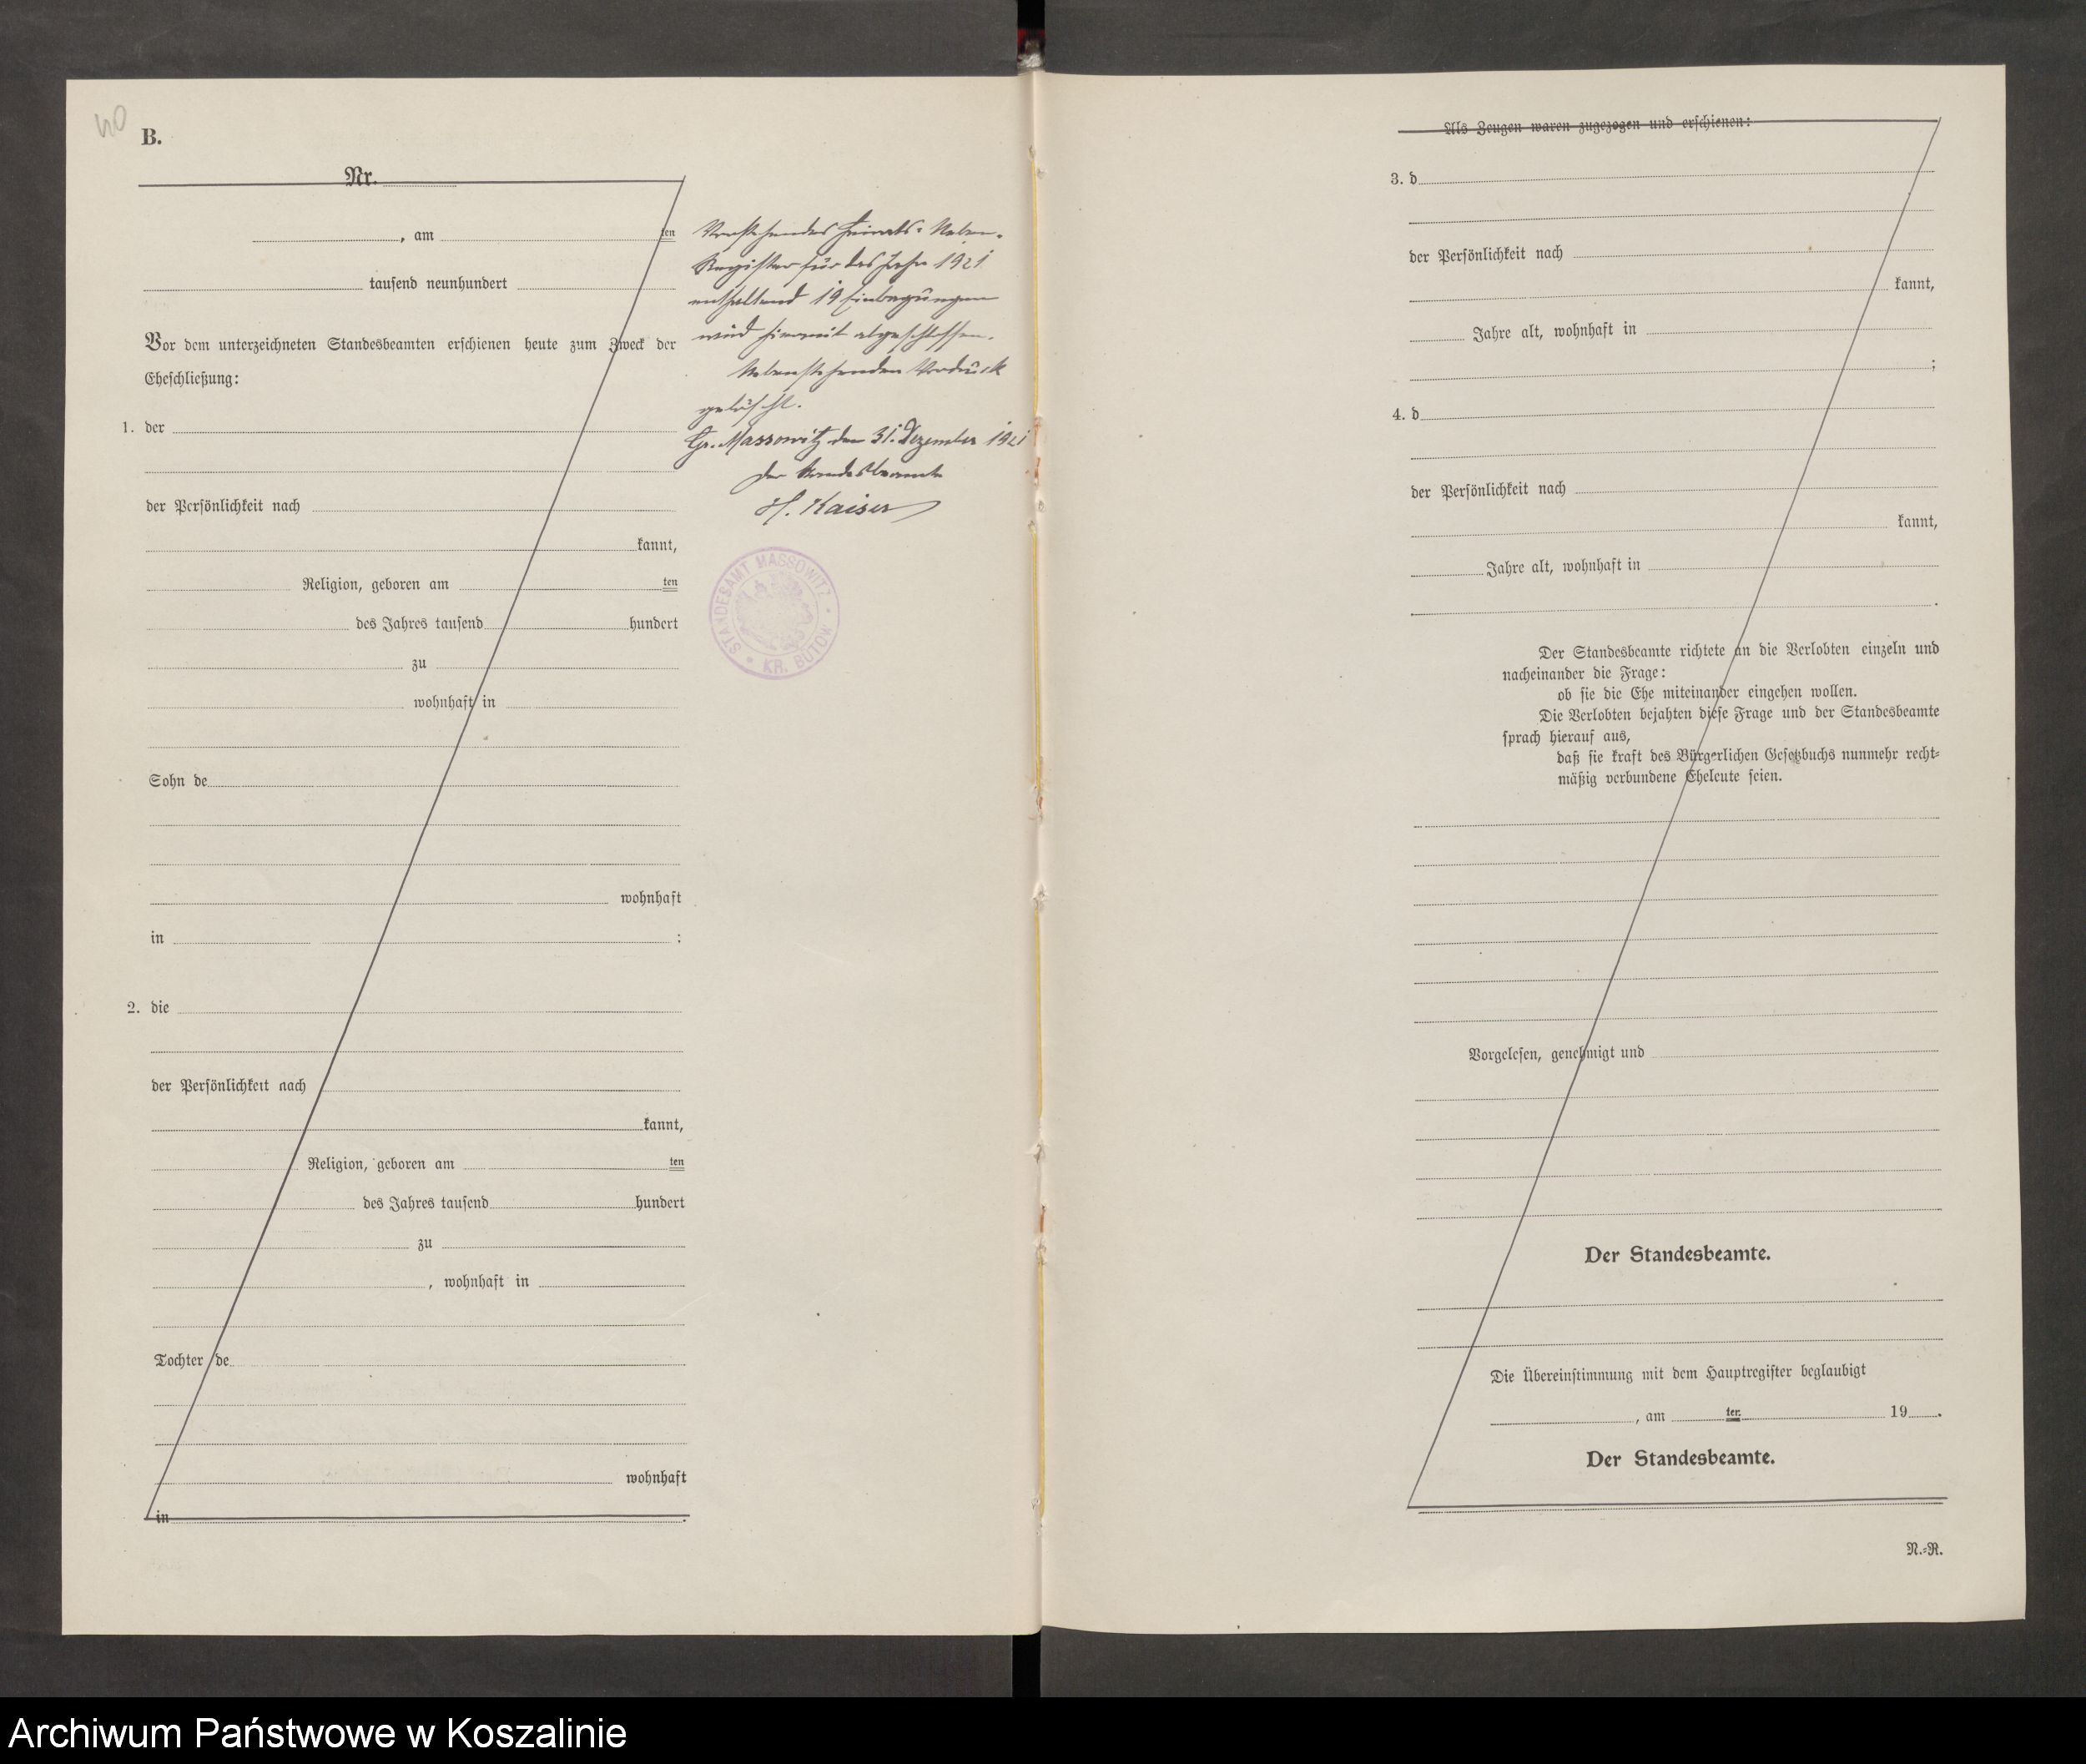 40
B.
Nr.
, am ten
tausend neunhundert
Vor dem unterzeichneten Standesbeamten erschienen heute zum Zweck der
Eheschließung:
1. der
der Persönlichkeit nach
kannt,
Religion, geboren am ten
des Jahres tausend hundert
zu
wohnhaft in
Sohn de
wohnhaft
in :
2. die
der Persönlichkeit nach
kannt,
Religion, geboren am ten
des Jahres tausend hundert
zu
, wohnhaft in
Tochter de
wohnhaft
in .
Vorstehendes Heirats-Neben-
Register für das Jahr 1921
enthaltend 19 Eintragungen
wird hiermit abgeschlossen.
Nebenstehenden Vordruck
gelöscht.
Gr. Massowitz den 31. Dezember 1921
Der Standesbeamte
H. Kaiser
STANDESAMT MASSOWITZ
KR. BÜTOW
Als Zeugen waren zugezogen und erschienen:
3. d
der Persönlichkeit nach
kannt,
Jahre alt, wohnhaft in
;
4. d
der Persönlichkeit nach
kannt,
Jahre alt, wohnhaft in
.
Der Standesbeamte richtete an die Verlobten einzeln und
nacheinander die Frage:
ob sie die Ehe miteinander eingehen wollen.
Die Verlobten bejahten diese Frage und der Standesbeamte
sprach hierauf aus,
daß sie kraft des Bürgerlichen Gesetzbuchs nunmehr recht-
mäßig verbundene Eheleute seien.
Vorgelesen, genehmigt und
Der Standesbeamte.
Die Übereinstimmung mit dem Hauptregister beglaubigt
, am ten 19 .
Der Standesbeamte.
N.-R.
Archiwum Państwowe w Koszalinie